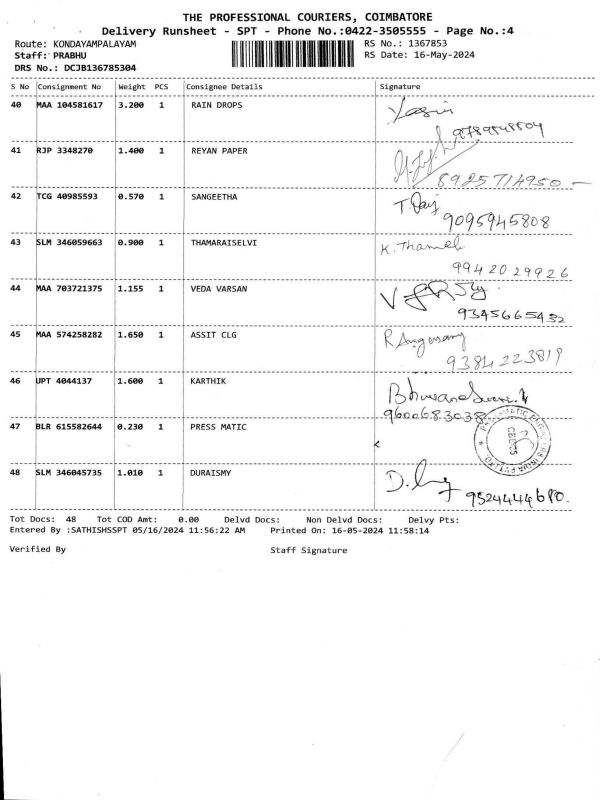 THE PROFESSIONAL COURIERS, COIMBATORE
Delivery Runsheet - SPT - Phone No.:0422-3505555 - Page No.:4
Route: KONDAYAMPALAYAM RS No.: 1367853
Staff: PRABHU RS Date: 16-May-2024
DRS No.: DCJB136785304
S No Consignment No Weight PCS Consignee Details Signature
40 MAA 104581617 3.200 1 RAIN DROPS
41 RJP 3348270 1.400 1 REYAN PAPER
8925714950
42 TCG 40985593 0.570 1 SANGEETHA
9095945808
43 SLM 346059663 0.900 1 THAMARAISELVI
9942029926
44 MAA 703721375 1.155 1 VEDA VARSAN
9345665432
45 MAA 574258282 1.650 1 ASSIT CLG
9384223819
46 UPT 4044137 1.600 1 KARTHIK
9600683038
47 BLR 615582644 0.230 1 PRESS MATIC
48 SLM 346045735 1.010 1 DURAISMY
Tot Docs: 48 Tot COD Amt: 0.00 Delvd Docs: Non Delvd Docs: Delvy Pts:
Entered By :SATHISHSSPT 05/16/2024 11:56:22 AM Printed On: 16-05-2024 11:58:14
Verified By Staff Signature